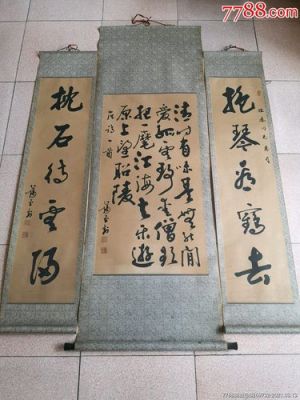 7788.com
抱琴看鶴去
清时有味是無能閒
愛孤雲靜愛僧欲
把一麾江海去樂遊
原上望昭陵
枕石待雲歸